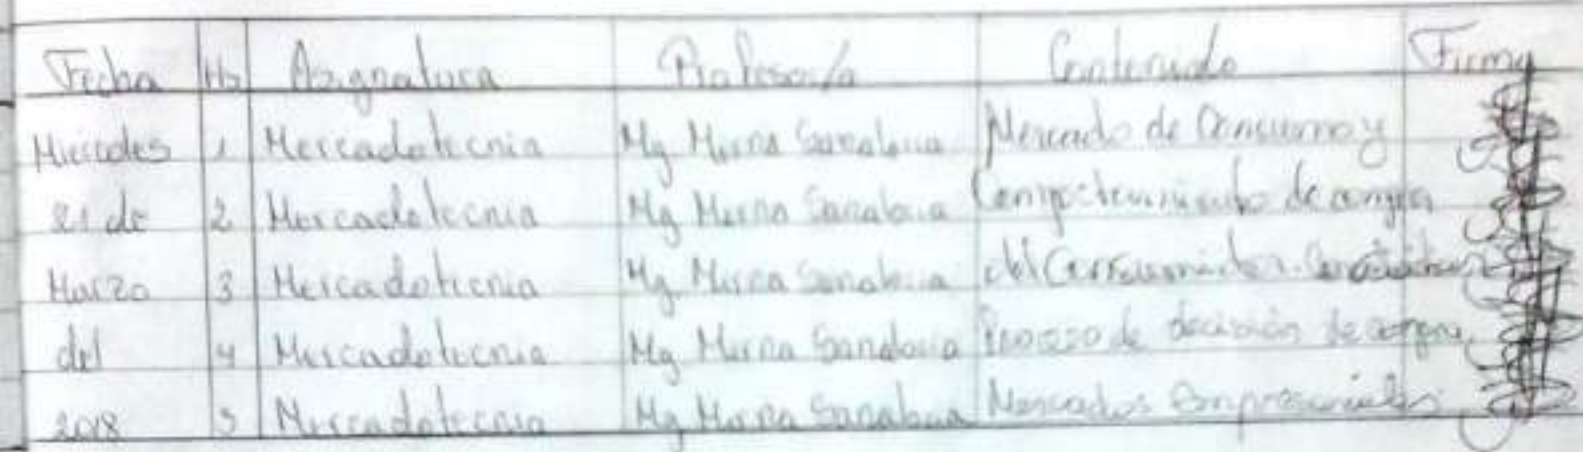 Fecha Hs Asignatura Profesor/a Contenido Firma
Miércoles 1 Mercadotecnia Mg Mirna Sanabria Mercado de Consumo y
21 de 2 Mercadotecnia Mg Mirna Sanabria Comportamiento de compra
Marzo 3 Mercadotecnia Mg Mirna Sanabria del Consumidor.
del 4 Mercadotecnia Mg Mirna Sanabria Proceso de decisión de compra.
2018 5 Mercadotecnia Mg Mirna Sanabria Mercados Empresariales